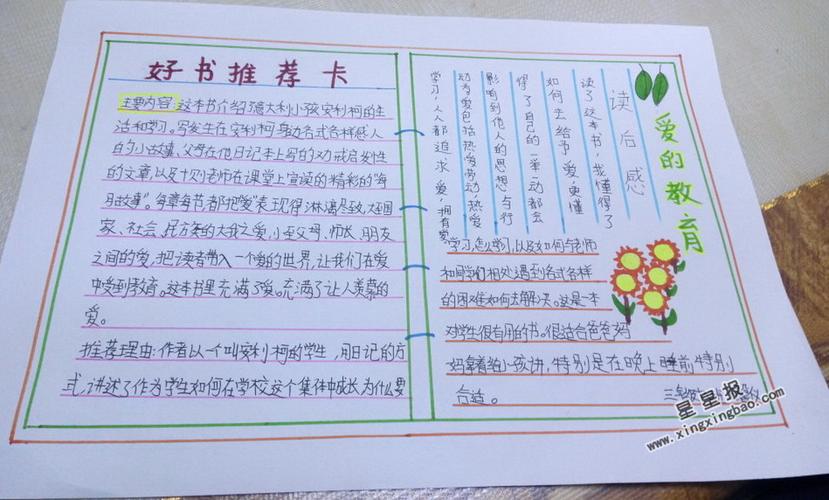 好书推荐卡
主要内容:这本书介绍意大利小孩安利柯的生
活和学习。写发生在安利柯身边各式各样感人
的小故事、父母在他日记本上写的劝戒启发性
的文章,以及十则老师在课堂上宣读的精彩的"每
月故事"。每章每节都把爱表现得淋漓尽致,大至国
家、社会、民族的大我之爱,小至父母、师长、朋友
之间的爱,把读者带入一个爱的世界,让我们在爱
中受到教育。这本书里充满了爱。充满了让人羡慕的
爱。
推荐理由:作者以一个叫安利柯的学生,用日记的方
式,讲述了作为学生如何在学校这个集体中成长,为什么要
学习,怎么学习,以及如何与老师
和同学们相处遇到各式各样
的困难如何去解决。这是一本
对学生很有用的书。很适合爸爸妈
妈拿着给小孩讲,特别是在晚上睡前特别
合适。
爱的教育
读后感
读了这本书,我懂得了
如何去给予爱,更懂
得了自己的一举一动都会
影响到他人的思想与行
动为爱包括热爱劳动,热爱
学习,人人都追求爱,拥有爱
星星报
www.xingxingbao.com